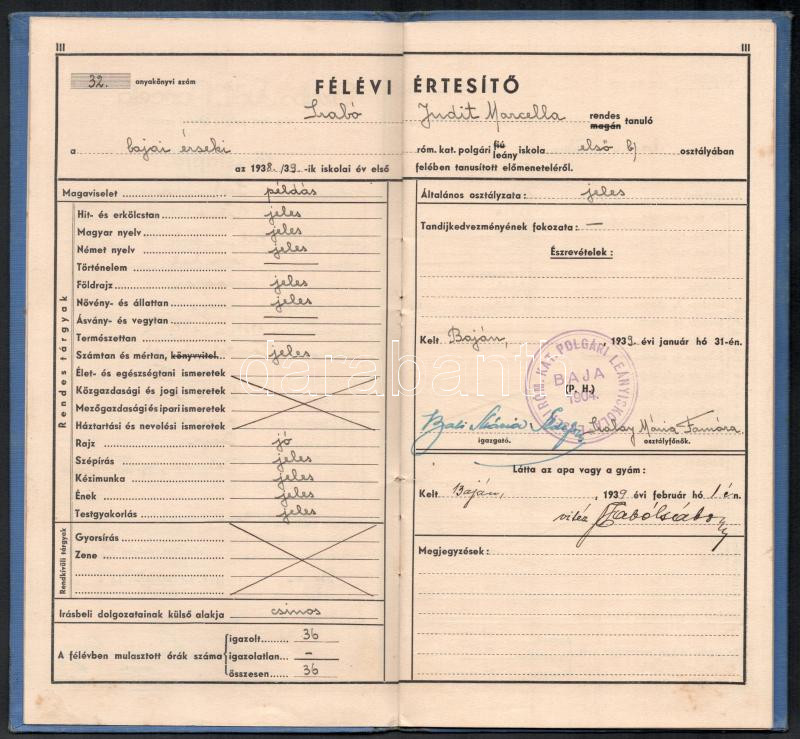 III
III
32. anyakönyvi szám
FÉLÉVI ÉRTESÍTŐ
Szabó Judit Marcella rendes magán tanuló
a bajai érseki róm. kat. polgári fiú leány iskola első b) osztályában
az 1938./39.-ik iskolai év első felében tanusított előmeneteléről.
Magaviselet példás
Rendes tárgyak
Hit- és erkölcstan jeles
Magyar nyelv jeles
Német nyelv jeles
Történelem —
Földrajz jeles
Növény- és állattan jeles
Ásvány- és vegytan —
Természettan —
Számtan és mértan, könyvvitel jeles
Élet- és egészségtani ismeretek
Közgazdasági és jogi ismeretek
Mezőgazdasági és ipari ismeretek
Háztartási és nevelési ismeretek
Rajz jó
Szépírás jeles
Kézimunka jeles
Ének jeles
Testgyakorlás jeles
Rendkívüli tárgyak
Gyorsírás
Zene
Irásbeli dolgozatainak külső alakja csinos
A félévben mulasztott órák száma
igazolt 36
igazolatlan –
összesen 36
Általános osztályzata: jeles
Tandíjkedvezményének fokozata: —
Észrevételek:
Kelt Baján, 1939. évi január hó 31-én.
RÓM. KAT. POLGÁRI LEÁNYISKOLA
BAJA
1904.
(P. H.)
Mária
Mária
igazgató.
osztályfőnök.
Látta az apa vagy a gyám:
Kelt Baján, 1939 évi február hó 1-én.
vitéz
Megjegyzések:
darabanth